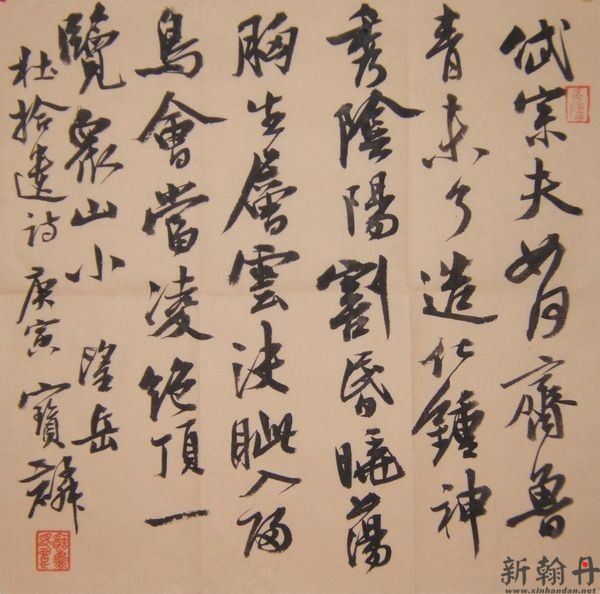 岱宗夫如何齊魯
青未了造化鍾神
秀陰陽割昏曉蕩
胸生層雲決眦入歸
鳥會當凌絕頂一
覽眾山小 望岳
杜拾遺诗 庚寅 寶麟
新翰丹
www.xinhandan.net